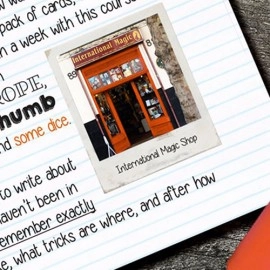 pack of cards,
a week with this
ROPE,
humb
nd some dice.
International Magic
89
International Magic Shop
to write about
haven't been in
emember exactly
e, what tricks are where, and after how